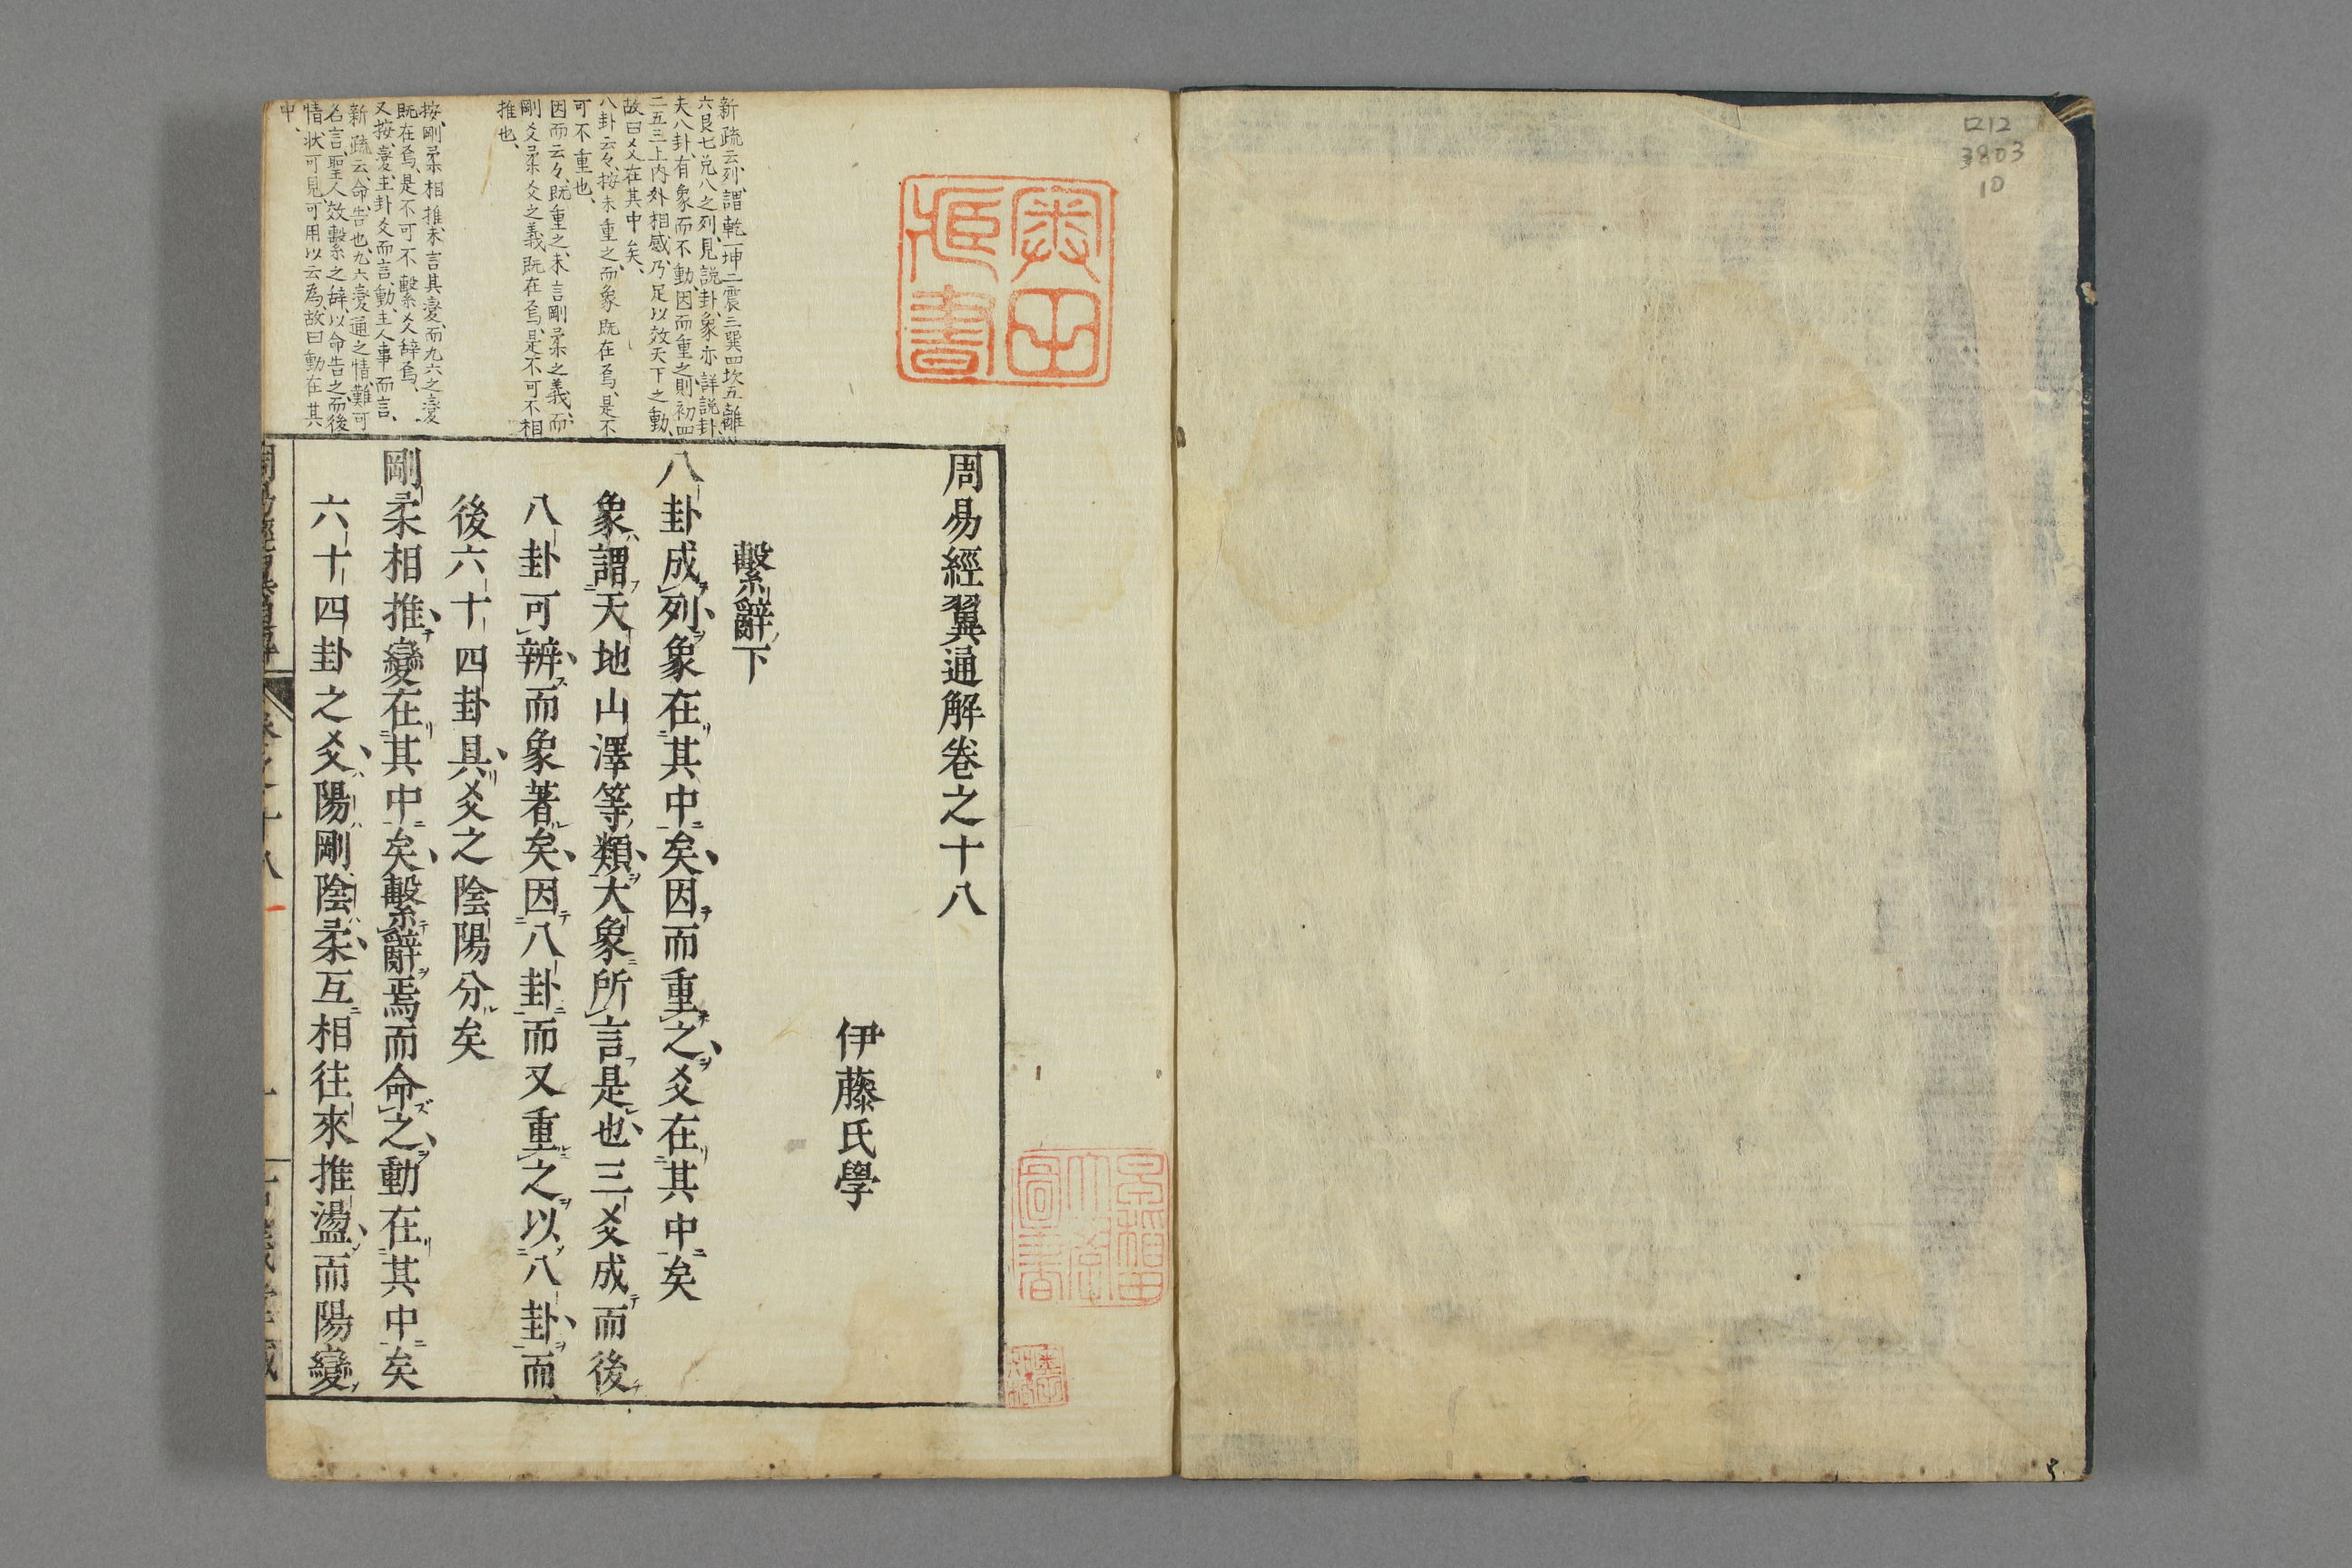 ロ12
3803
10
周易經翼通解卷之十八
伊藤氏學
繫辭下
八卦成列象在其中矣因而重之爻在其中矣
象謂天地山澤等類大象所言是也三爻成而後
八卦可辨而象著矣因八卦而又重之以八卦而
後六十四卦具爻之陰陽分矣
剛柔相推變在其中矣繫辭焉而命之動在其中矣
六十四卦之爻陽剛陰柔互相往來推盪而陽變
新疏云列謂乾一坤二震三巽四坎五離
六艮七兌八之列見說卦象亦詳說卦
夫八卦有象而不動因而重之則初四
二五三上內外相感乃足以效天下之動
故曰爻在其中矣
八卦云々按未重之而象既在焉是不
可不重也
因而云々既重之未言剛柔之義而
剛爻柔爻之義既在焉是不可不相
推也
按剛柔相推未言其變而九六之變
既在焉是不可不繫爻辭焉
又按變主卦爻而言動主人事而言
新疏云命告也九六變通之情難可
名言聖人效繫之辭以命告之而後
情狀可見可用以云為故曰動在其
中